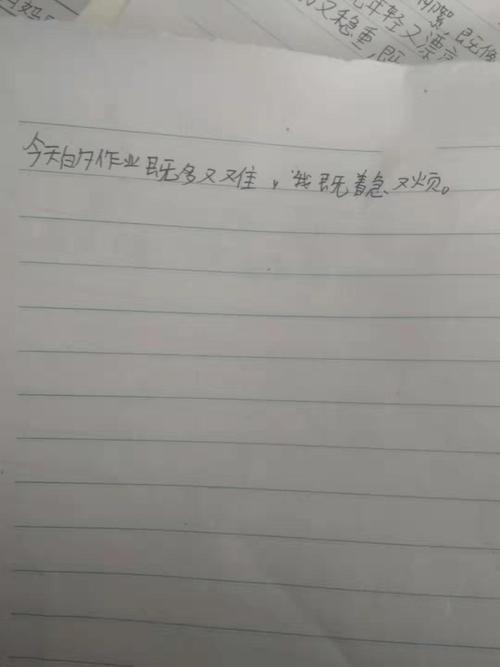 既像
年轻又漂亮
又稳重,既
今天的作业既多又难,我既着急又烦。